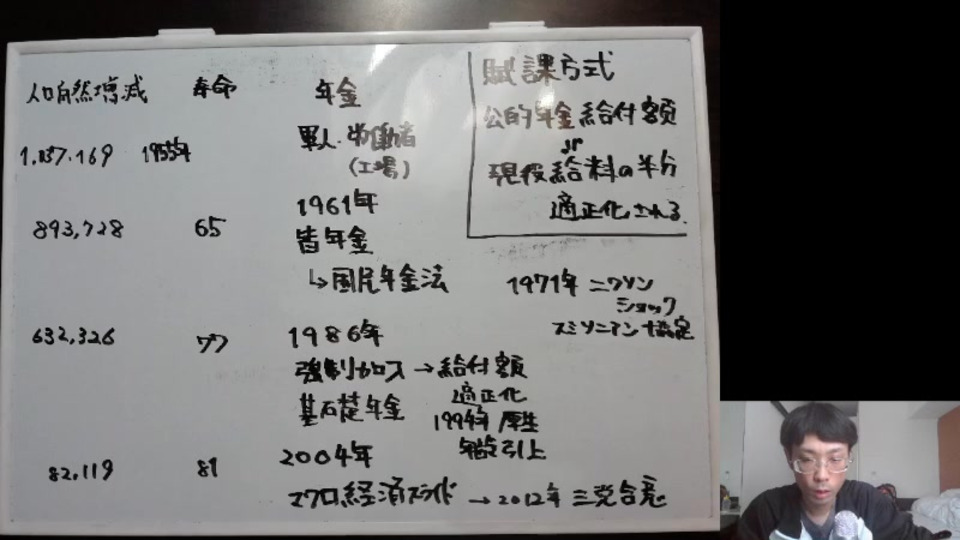 人口自然増減 寿命 年金
軍人・労働者
(工場)
1,137,169 1955年
1961年
893,728 65
皆年金
↳国民年金法
632,326 77 1986年
強制加入→給付額
適正化
基礎年金
1994年 厚生
年齢引上
82,119 81 2004年
マクロ経済スライド→2012年 三党合意
賦課方式
公的年金給付額
が
現役給料の半分
適正化される
1971年 ニクソン
ショック
スミソニアン協定